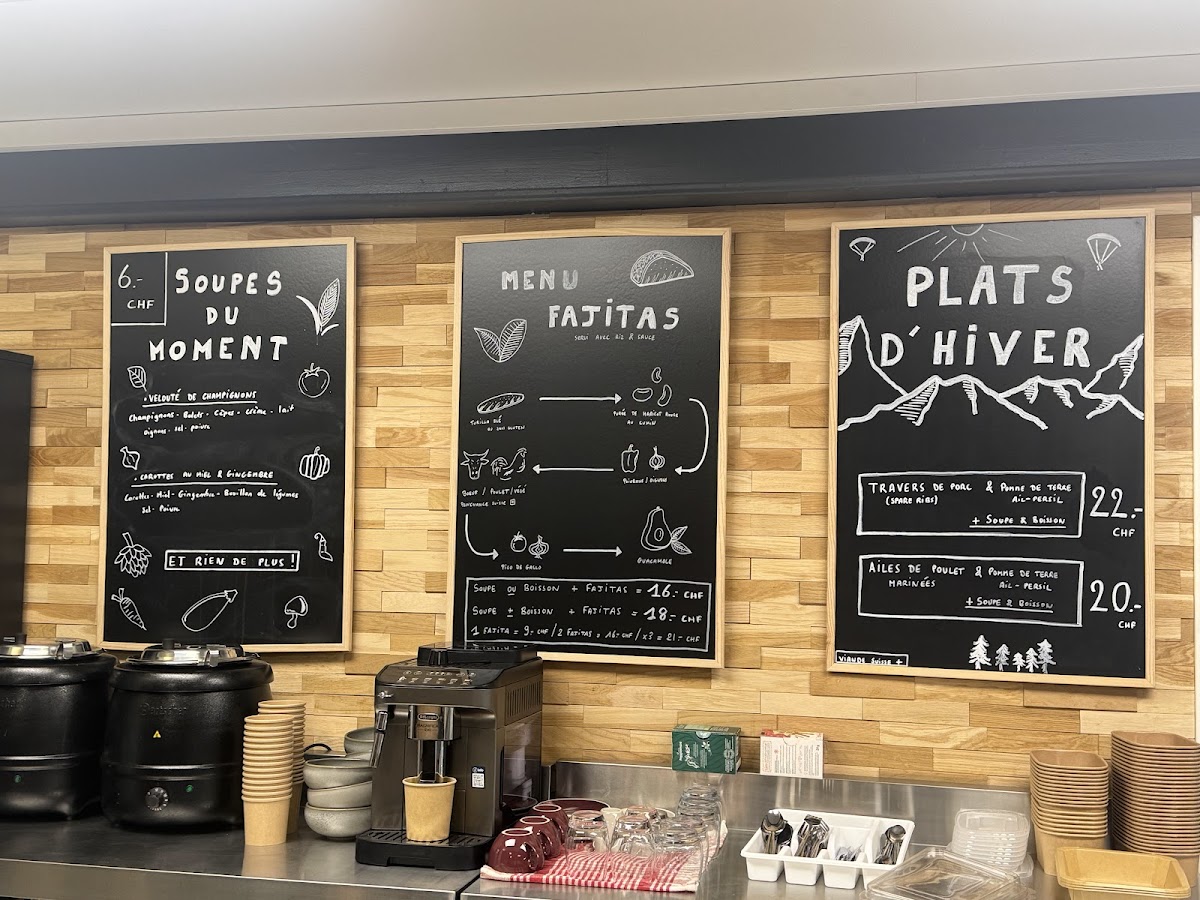 6.-
CHF
SOUPES
DU
MOMENT
• VELOUTÉ DE CHAMPIGNONS
Champignons - Bolets - Cèpes - Crème - Lait
Oignons - Sel - Poivre
• CAROTTES AU MIEL & GINGEMBRE
Carottes - Miel - Gingembre - Bouillon de légumes
Sel - Poivre
ET RIEN DE PLUS !
MENU
FAJITAS
SERVI AVEC RIZ & SAUCE
TORTILLA BLÉ
OU SANS GLUTEN
PURÉE DE HARICOT ROUGE
AU CUMIN
BOEUF / POULET / VÉGÉ
PROVENANCE SUISSE
POIVRONS / OIGNONS
PICO DE GALLO
GUACAMOLE
SOUPE OU BOISSON + FAJITAS = 16.- CHF
SOUPE + BOISSON + FAJITAS = 18.- CHF
1 FAJITA = 9.- CHF / 2 FAJITAS = 16.- CHF / x3 = 21.- CHF
PLATS
D'HIVER
TRAVERS DE PORC & POMME DE TERRE
(SPARE RIBS) AIL-PERSIL
+ SOUPE & BOISSON
22.-
CHF
AILES DE POULET & POMME DE TERRE
MARINÉES AIL - PERSIL
+ SOUPE & BOISSON
20.-
CHF
VIANDE SUISSE +
DeLonghi